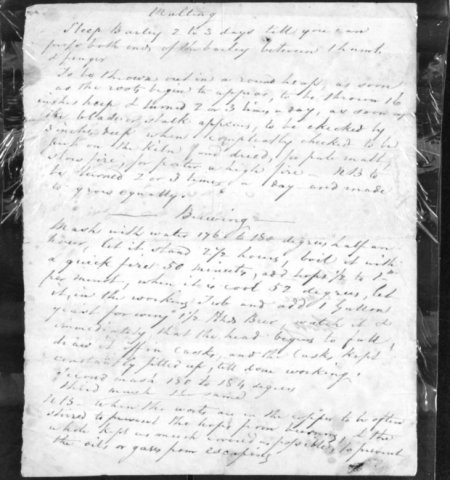 Malting
Steep Barley 2 to 3 days till you can
press both ends of the barley between thumb
& finger
To be thrown out in a round heap, as soon
as the roots begin to appear, to be thrown 16
inches deep & turned 2 or 3 times a day, as soon as
the blade or stalk appears, to be checked by
inches deep when completely checked to be
put on the Kiln and dried, for pale malt,
slow fire, for porter a high fire — NB to
be turned 2 or 3 times a day and made
to grow equally.
Brewing
Mash with water 176 to 180 degrees half an
hour, let it stand 2 1/2 hours, boil it with
a quick fire 50 minutes, add hops
per when it is cool 52 degrees, let
it in the working Tub and add 1 gallon
yeast for every Bbls Beer, watch it &
immediately that the head begins to fall,
draw it off in casks, and the casks kept
constantly filled up, till done working.
Second mash 180 to 184 degrees
third mash the same
NB — When the worts are in the copper to be often
stirred to prevent the hops from burning, & the
whole kept as much covered as possible, to prevent
the oils or gases from escaping